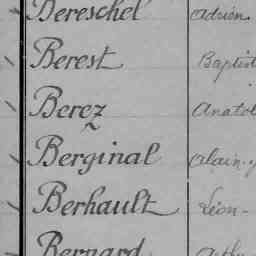 Bereschel Adrien
Berest Baptist
Berez Anatol
Berginal Alain
Berhault Léon -
Bernard Arthu